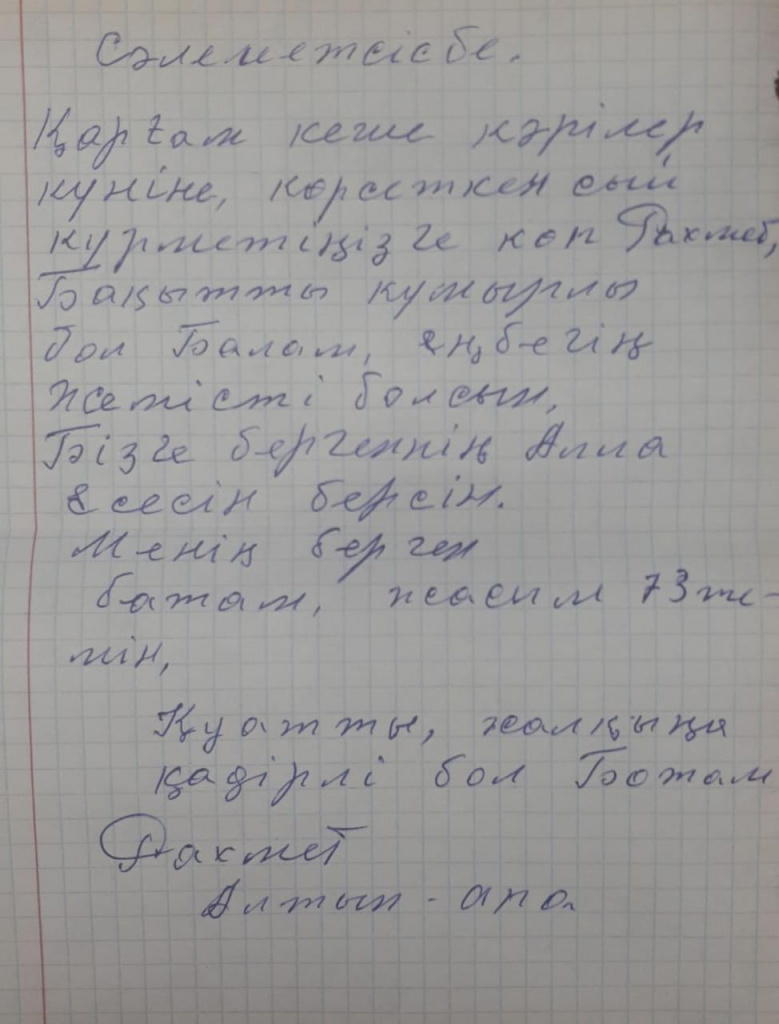 Сәлеметсісбе.
Қарғам кеше кәрілер
куніне, көрсеткен сый
курметіңізге көп Рахмет,
Бақытты
бол Балам, еңбегің
Жемісті болсын,
Бізге бергеннің Алла
есесін берсін.
Менің берген
батам, жасым 73те-
мін,
Қуатты, халқыңа
қадірлі бол Ботам
Рахмет
Алтын - апа